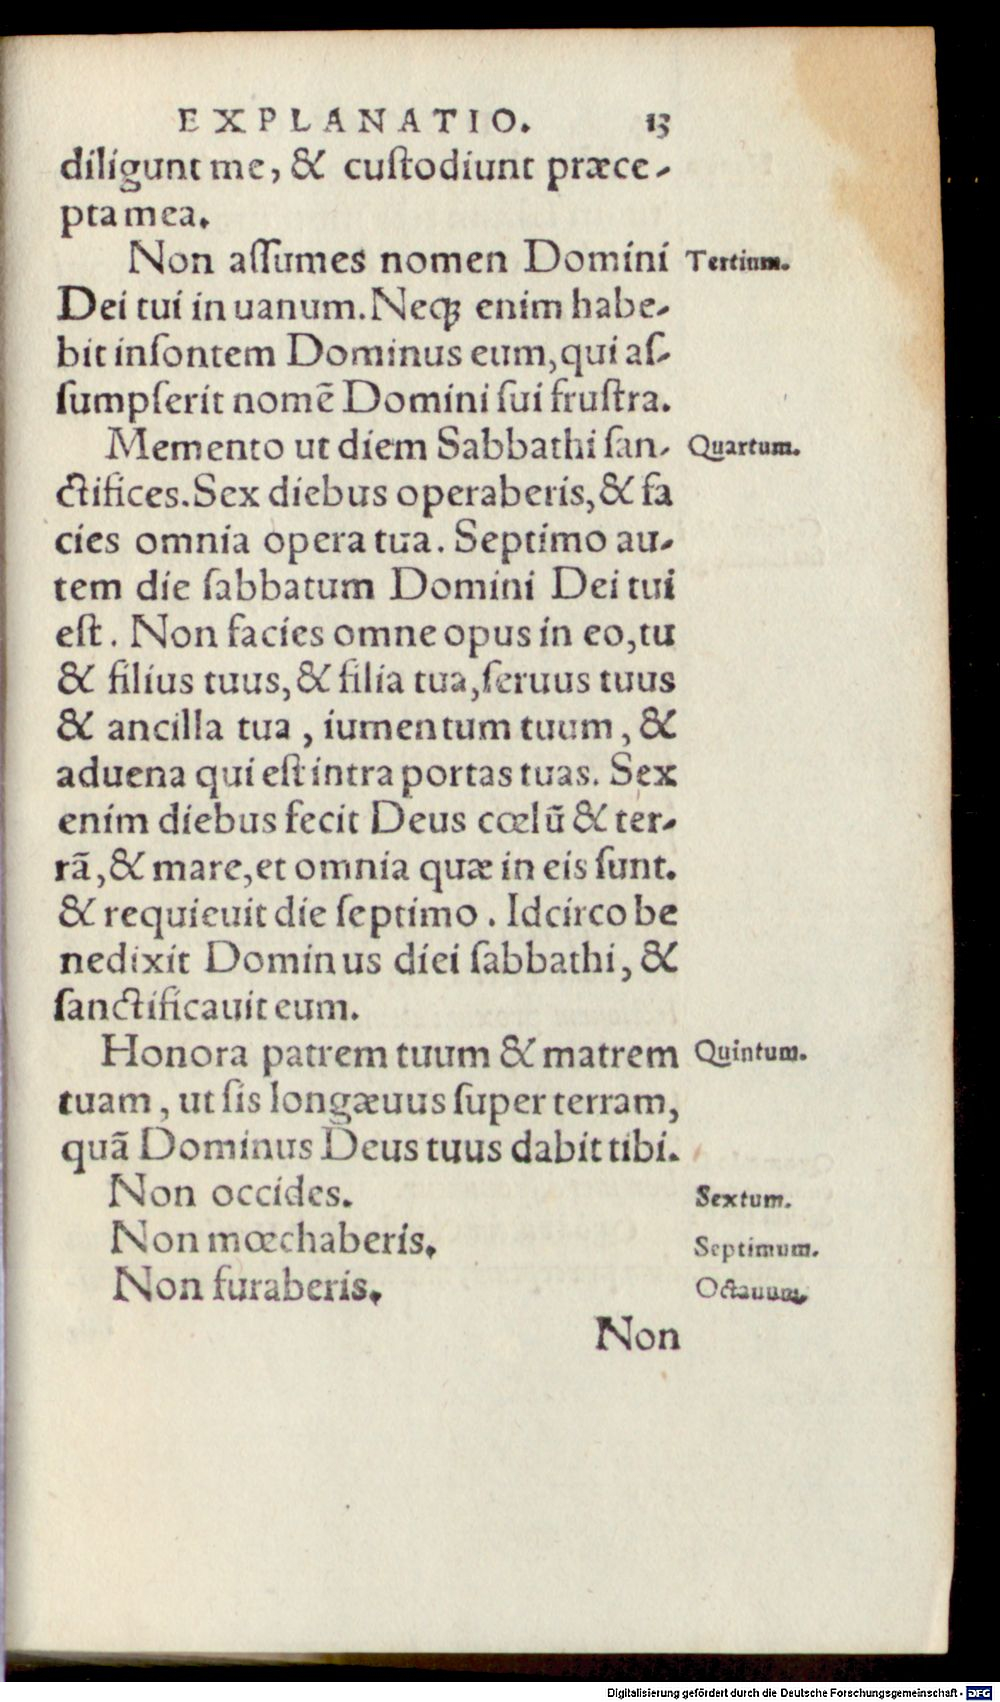 EXPLANATIO. 13
diligunt me, & cuſtodiunt præce-
pta mea.
Non aſſumes nomen Domini Tertium.
Dei tui in uanum. Neqꝫ enim habe-
bit inſontem Dominus eum, qui aſ-
ſumpſerit nomē Domini ſui fruſtra.
Memento ut diem Sabbathi ſan- Quartum.
ctifices. Sex diebus operaberis, & fa
cies omnia opera tua. Septimo au-
tem die ſabbatum Domini Dei tui
eſt. Non facies omne opus in eo, tu
& filius tuus, & filia tua, ſeruus tuus
& ancilla tua, iumentum tuum, &
aduena qui eſt intra portas tuas. Sex
enim diebus fecit Deus cœlū & ter-
rā, & mare, et omnia quæ in eis ſunt.
& requieuit die ſeptimo. Idcirco be
nedixit Dominus diei ſabbathi, &
ſanctificauit eum.
Honora patrem tuum & matrem Quintum.
tuam, ut ſis longæuus ſuper terram,
quā Dominus Deus tuus dabit tibi.
Non occides. Sextum.
Non mœchaberis. Septimum.
Non furaberis. Octauum.
Non
Digitalisierung gefördert durch die Deutsche Forschungsgemeinschaft - DFG